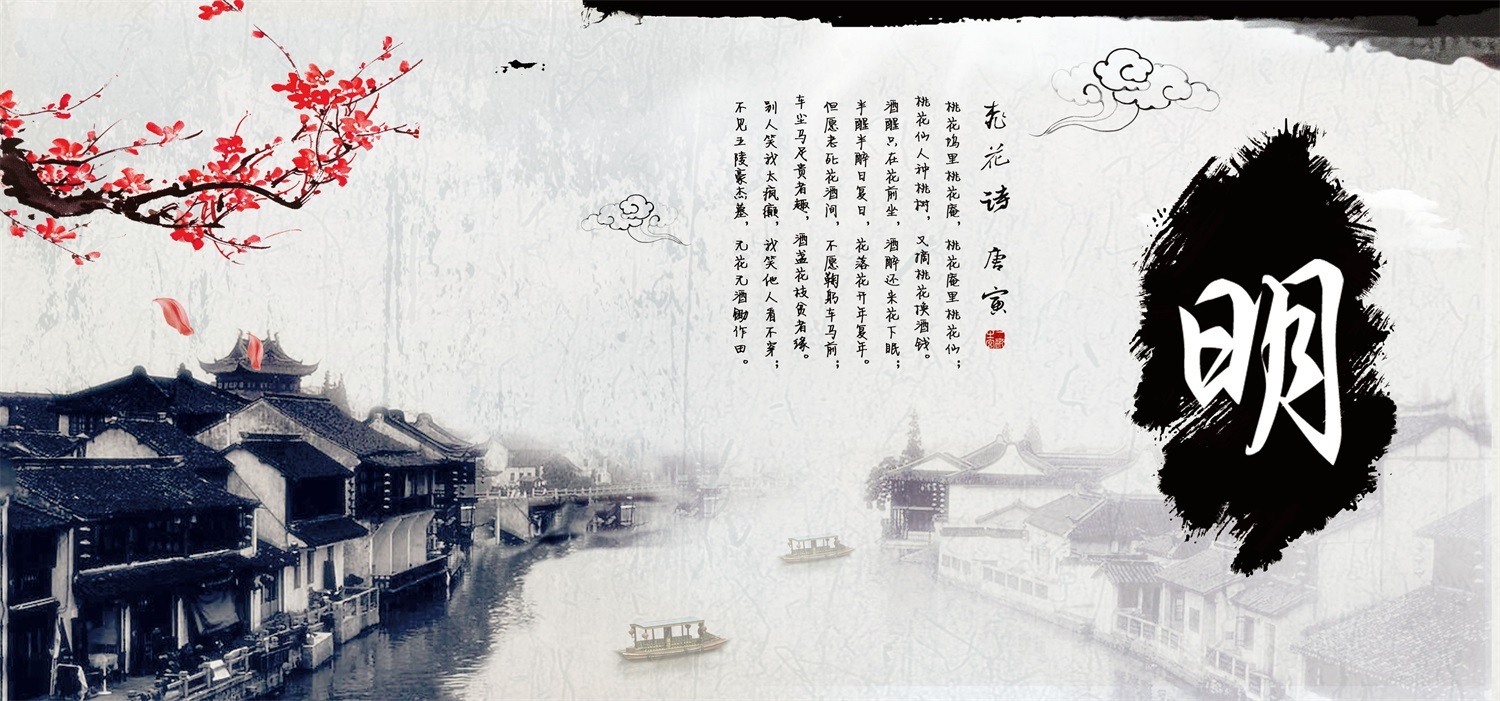 明
桃花诗 唐寅
桃花坞里桃花庵，桃花庵里桃花仙；
桃花仙人种桃树，又摘桃花换酒钱。
酒醒只在花前坐，酒醉还来花下眠；
半醒半醉日复日，花落花开年复年。
但愿老死花酒间，不愿鞠躬车马前；
车尘马足贵者趣，酒盏花枝贫者缘。
别人笑我太疯癫，我笑他人看不穿；
不见五陵豪杰墓，无花无酒锄作田。